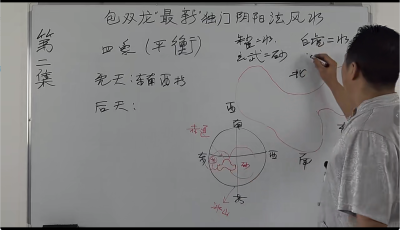 包双龙"最新"独门阴阳法风水
第二集
四象(平衡)
先天:东南西北
后天:
朱雀=水 白虎=水
玄武=砂
北
西
南
南
赤道
东
西
北
冰山